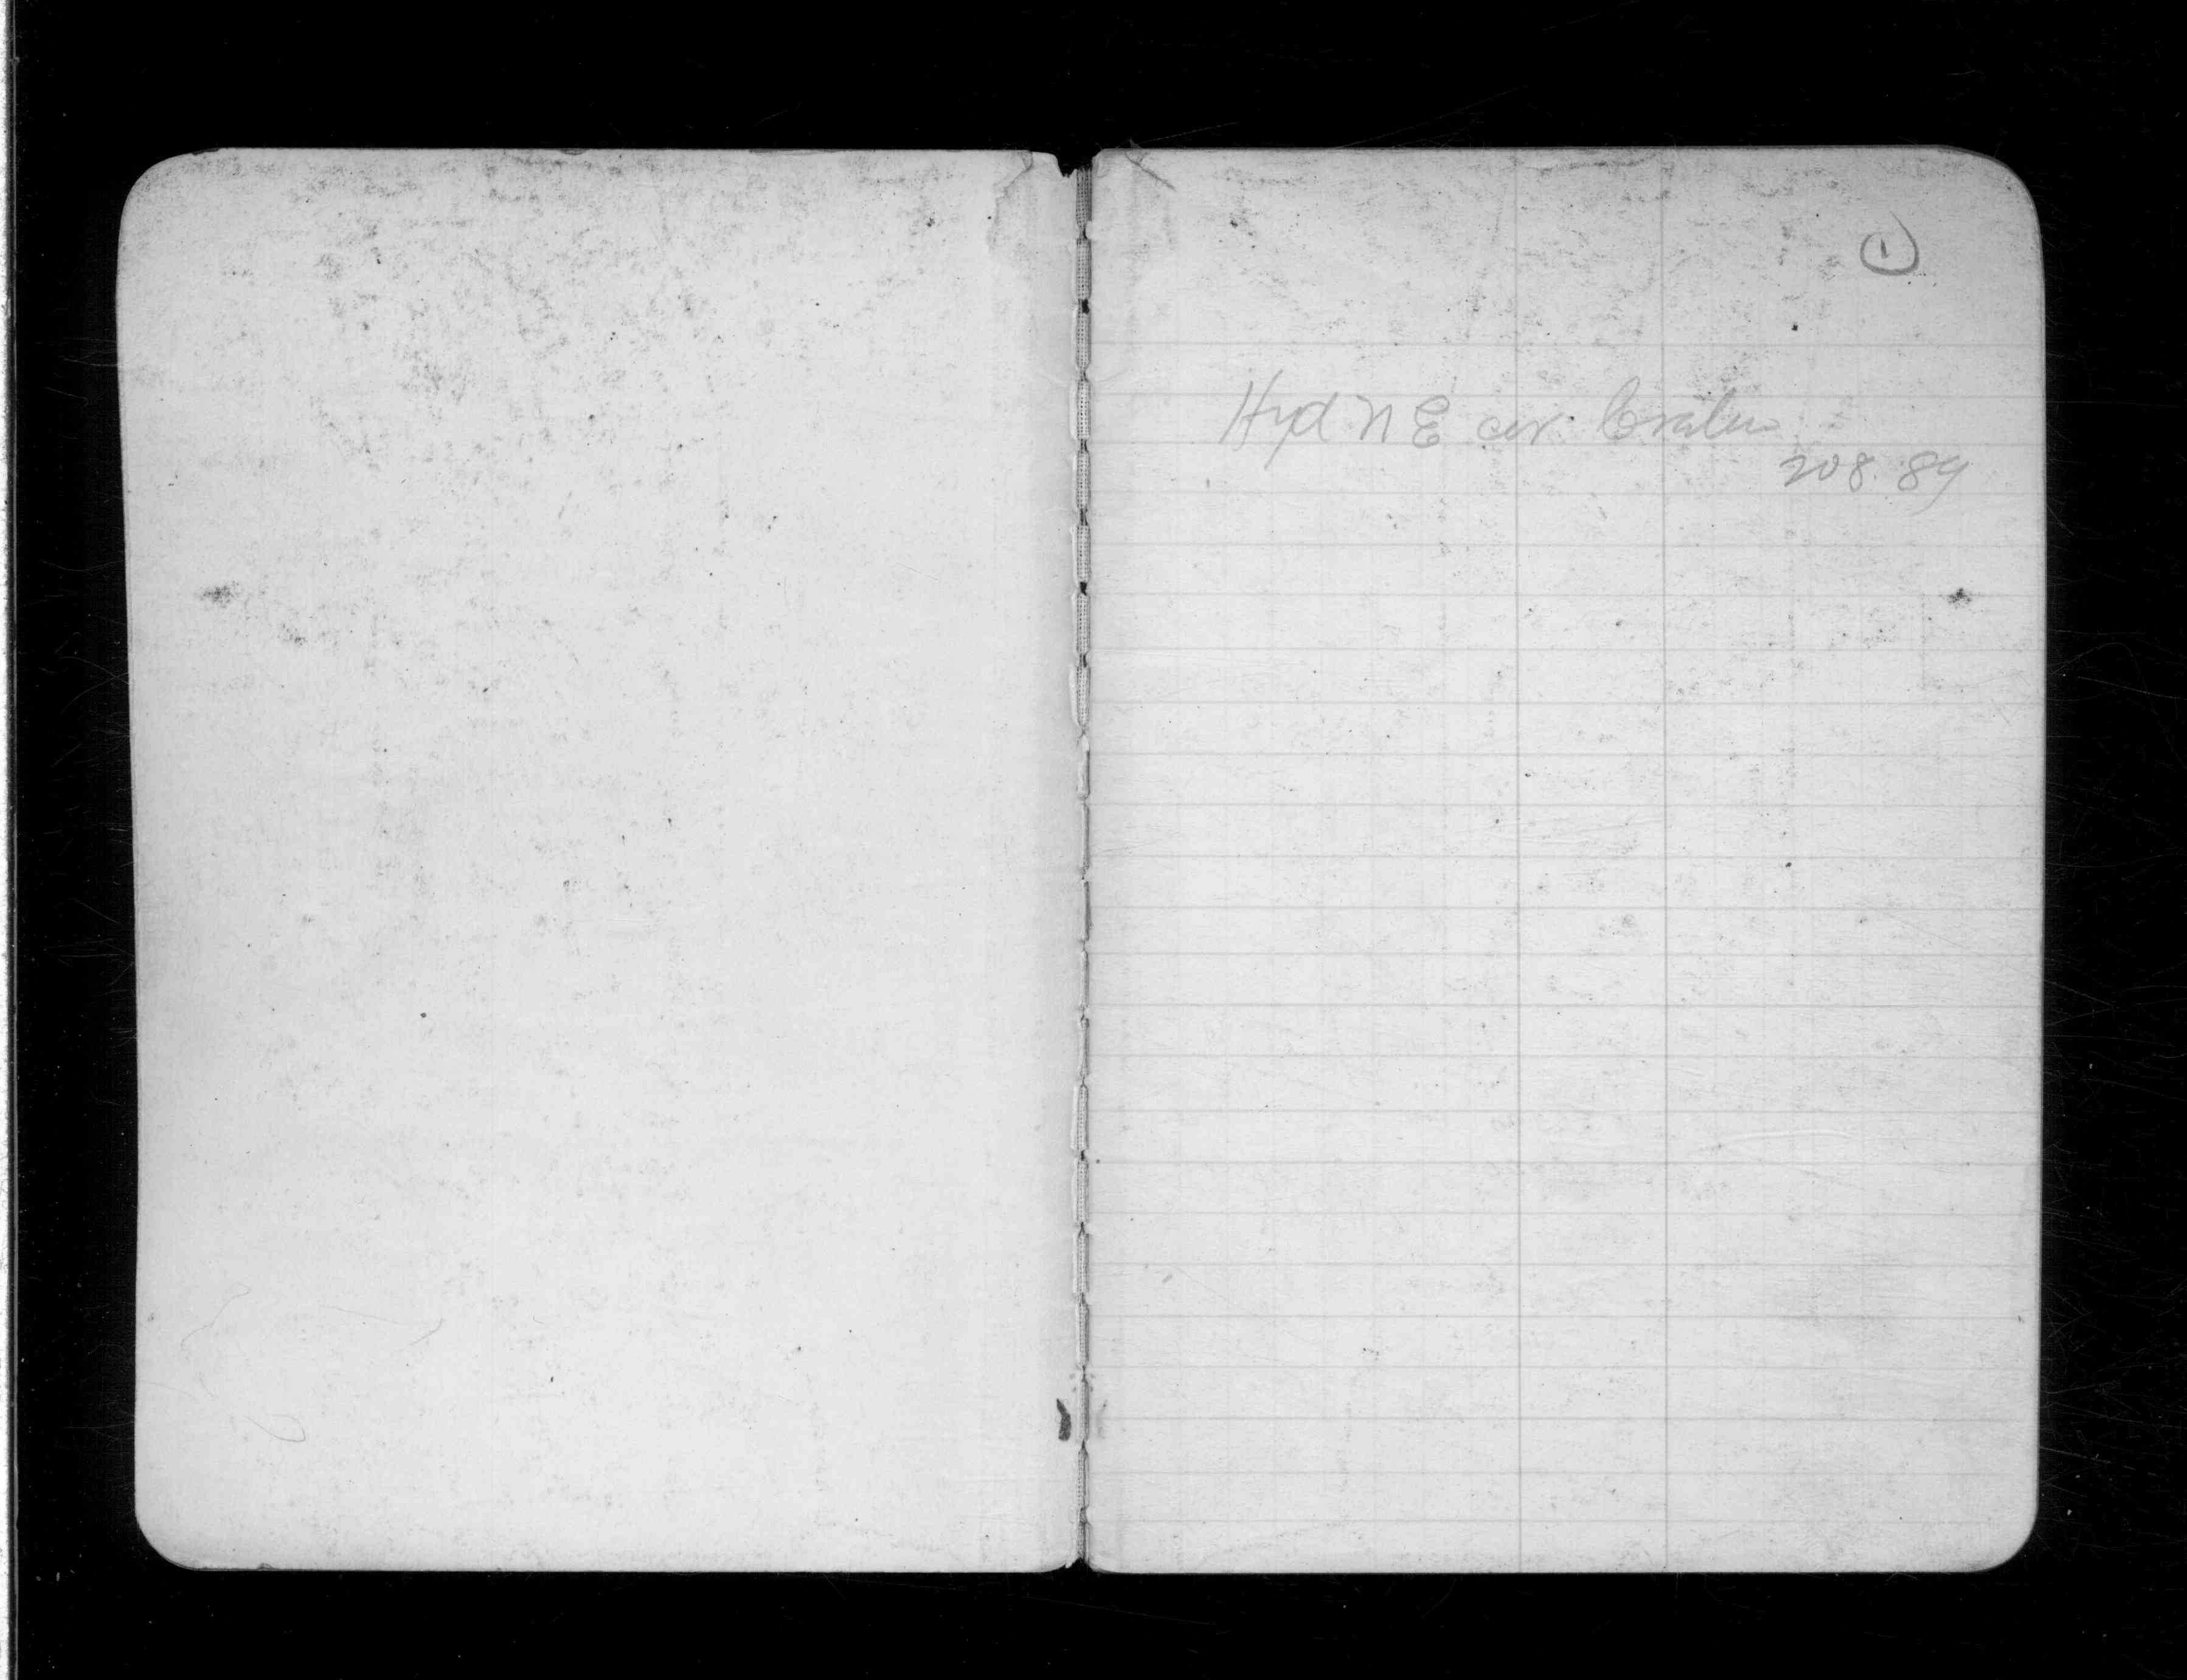 1
Hyd N E cor
208.89